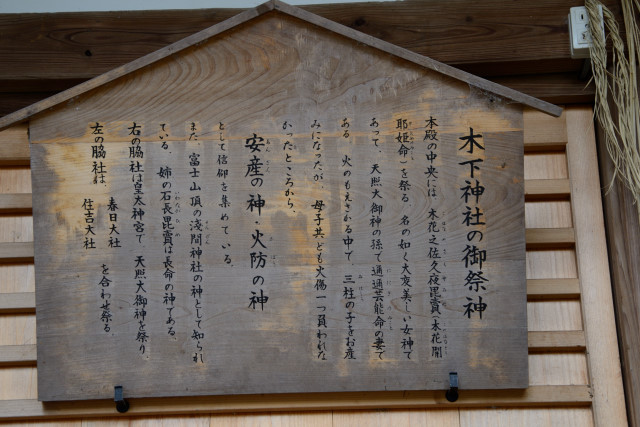 木下神社の御祭神
本殿の中央には、木花之佐久夜毘賣(木花開
耶姫命)を祭る。名の如く大変美しい女神で
あって、天照大御神の孫で邇邇芸能命の妻で
ある。火のもえさかる中で、三柱の子をお産
みになったが、母子共ども火傷一つ負われな
かったところから、
安産の神・火防の神
として信仰を集めている。
また、富士山頂の浅間神社の神として知られ
ている。姉の石長毘賣は長命の神である。
右の脇社は皇太神宮で、天照大御神を祭り、
左の脇社は、春日大社
住吉大社
を合わせ祭る。